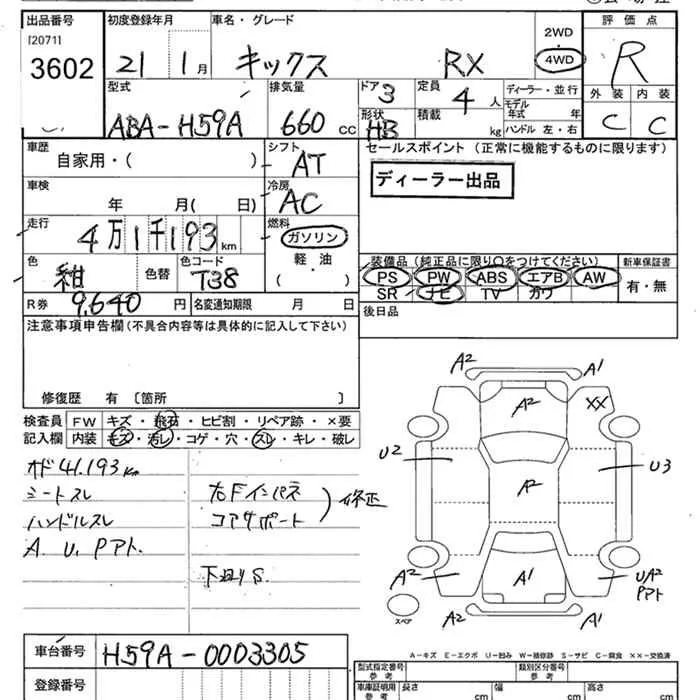 出品番号 初度登録年月 車名・グレード 2WD 評価点
[2071]
3602 21 1月 キックス RX 4WD R
型式 排気量 ドア 3 定員 4人 ディーラー・並行 外装 内装
モデル年式 年
ABA-H59A 660cc 形状 HB 積載 kg ハンドル 左・右 C C
車歴 シフト セールスポイント (正常に機能するものに限ります)
自家用・( ) AT
ディーラー出品
車検 冷房
年 月( 日) AC
走行 燃料
4万1千193km ガソリン
軽油
( )
色 色替 色コード 装備品 (純正品に限り○をつけてください) 新車保証書
紺 T38 PS PW ABS エアB AW 有・無
SR ナビ TV カワ
R券 9,640円 名変通知期限 月 日 後日品
注意事項申告欄 (不具合内容等は具体的に記入して下さい)
修復歴 有 〔箇所 〕
検査員 FW キズ・飛石・ヒビ割・リペア跡・×要
記入欄 内装 キズ・汚レ・コゲ・穴・スレ・キレ・破レ
オド41.193km
シートスレ 右Fインパネ
ハンドルスレ コアサポート 修正
A. U. Pアト.
下廻りS.
A2 A1
A2 XX
U2 A2 U3
A2 A1 UA2
Pアト
スペア A2 A1
A-キズ E-エクボ U-凹み W-補修跡 S-サビ C-腐食 ××-交換済
車台番号 H59A-0003305
型式指定番号 参考 類別区分番号 参考
登録番号 車庫証明用 参考 長さ cm 幅 cm 高さ cm